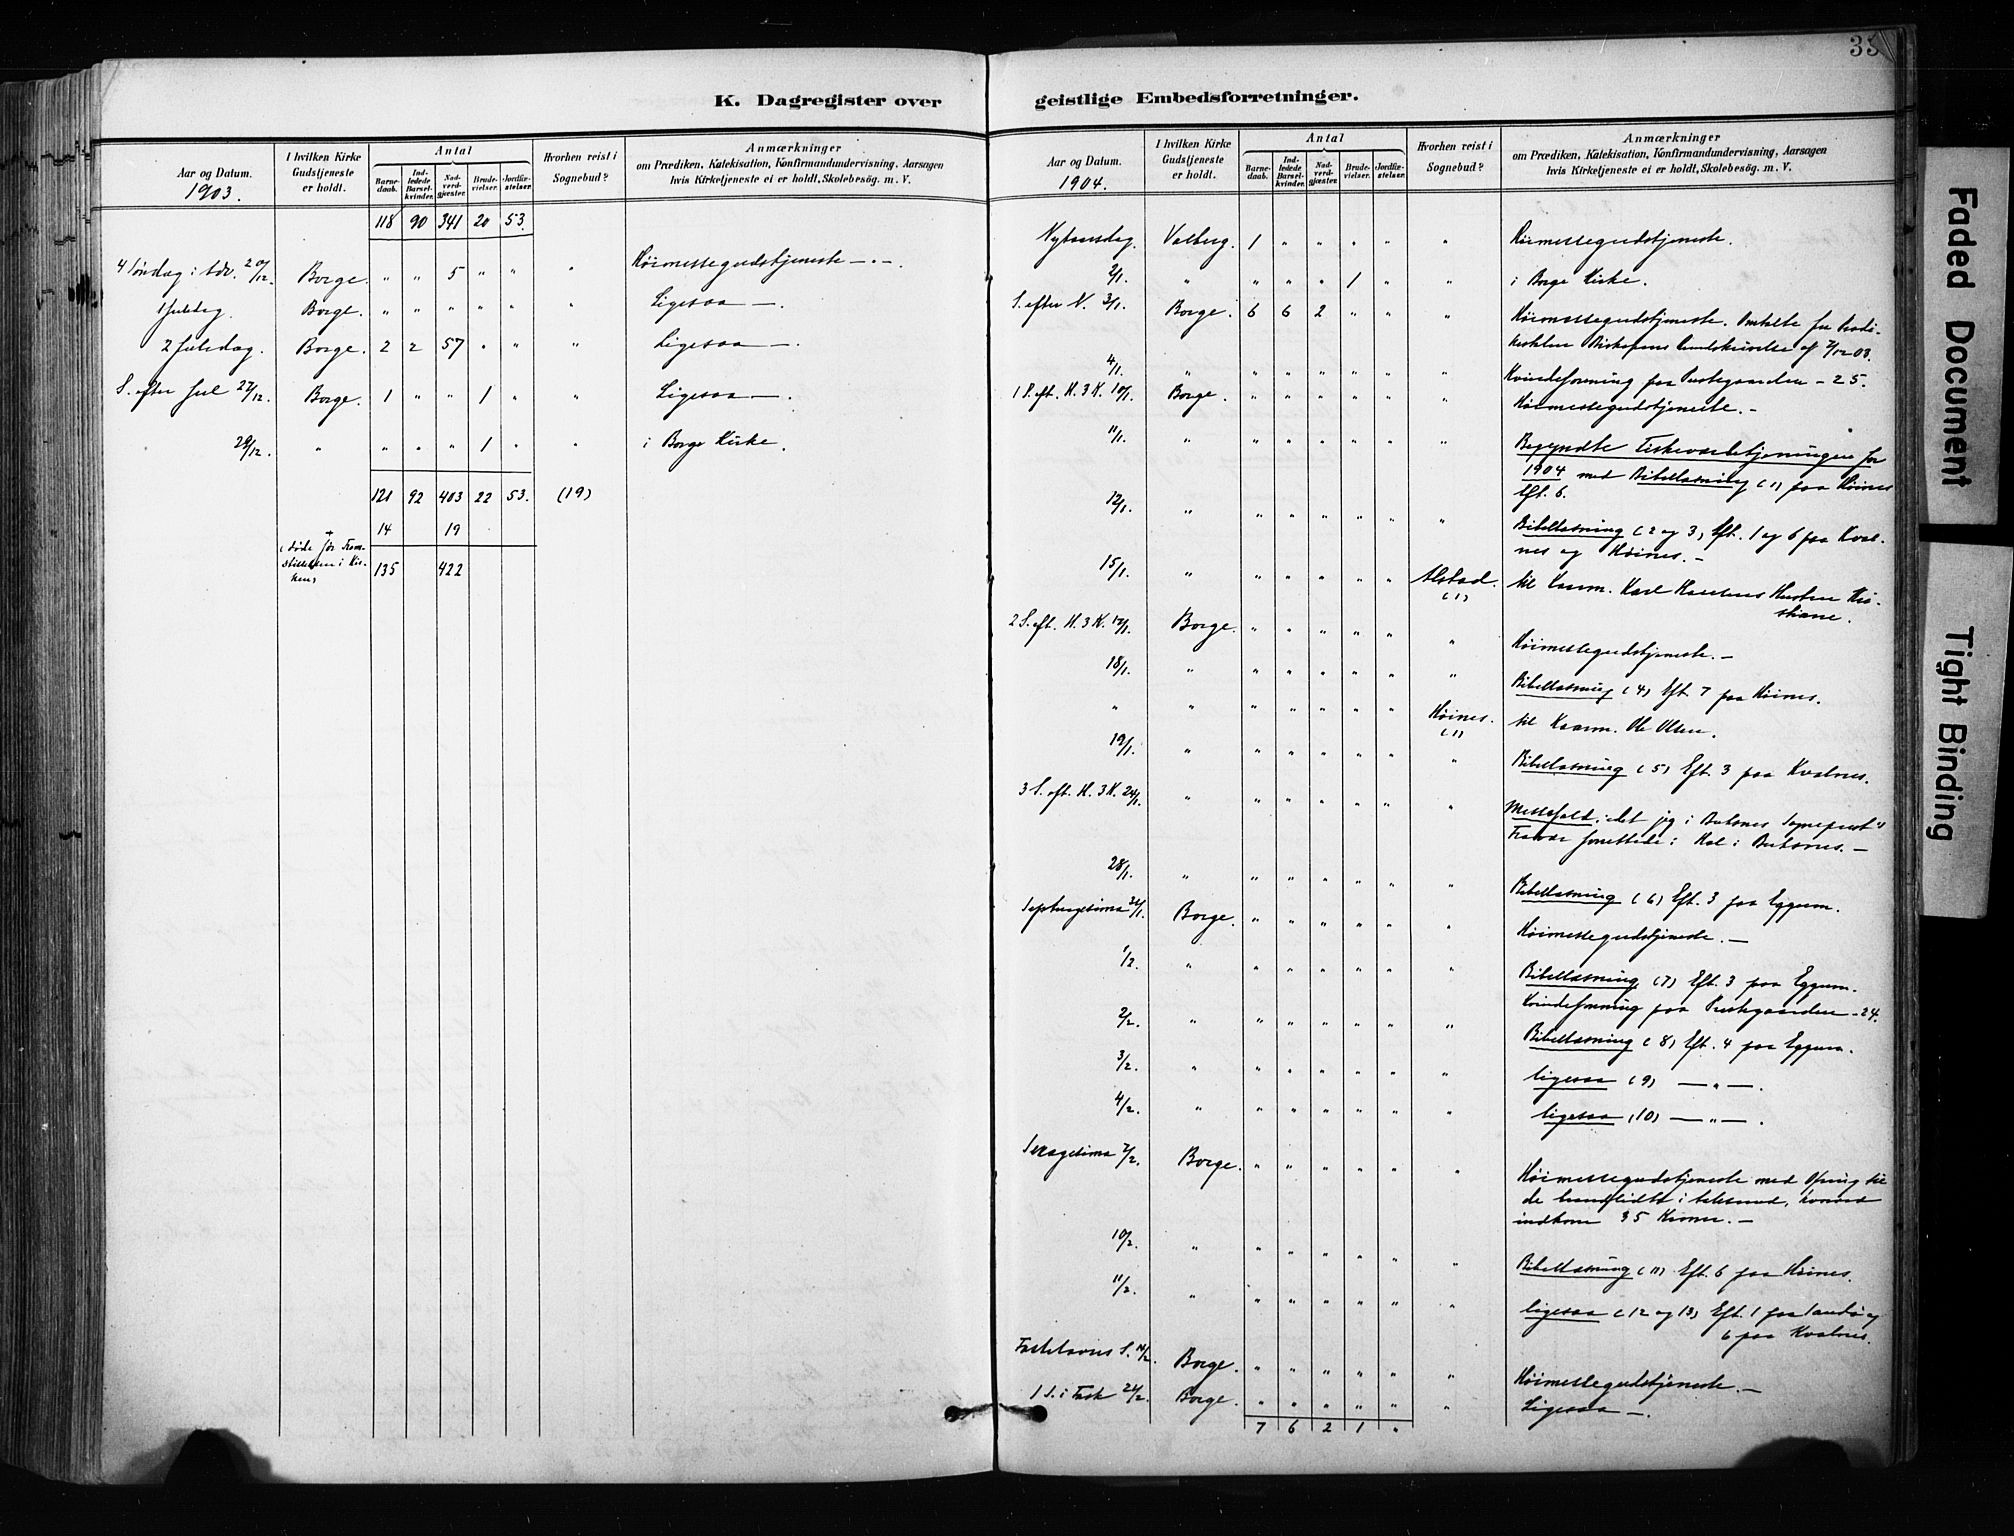 K. Dagregister over
Aar og Datum.
1903.
I hvilken Kirke Gudstjeneste er holdt.
Antal
Barnedaab.
Indledede Barselkvinder.
Nadverdgjester.
Brudevielser.
Jordfæstelser.
Hvorhen reist i Sognebud?
Anmærkninger
om Prædiken, Katekisation, Konfirmandundervisning, Aarsagen
hvis Kirketjeneste ei er holdt, Skolebesøg. m. V.
118 90 341 20 53.
4 Søndag i Adv. 20/12. Borge. " " 5 " " " Høimessegudstjeneste — " —.
1 Juledag. Borge. " " " " " " Ligesaa —.
2 Juledag. Borge. 2 2 57 " " " Ligesaa —.
S. efter Jul 27/12. Borge. 1 " " 1 " " Ligesaa —.
29/12. " " " " 1 " " i Borge Kirke.
121 92 403 22 53. (19)
14 19
(døde før Frem-
stillelsen i Kir-
ken)
135 422
geistlige Embedsforretninger.
Aar og Datum.
1904.
I hvilken Kirke Gudstjeneste er holdt.
Antal
Barnedaab.
Indledede Barselkvinder.
Nadverdgjester.
Brudevielser.
Jordfæstelser.
Hvorhen reist i Sognebud?
Anmærkninger
om Prædiken, Katekisation, Konfirmandundervisning, Aarsagen
hvis Kirketjeneste ei er holdt, Skolebesøg. m. V.
Nytaarsdag. Valberg. 1 " " " " " Høimessegudstjeneste.
2/1. " " " " 1 " " i Borge Kirke.
S. efter N. 3/1. Borge. 6 6 2 " " " Høimessegudstjeneste. Omtalte fra Prædi-
kestolen Biskopens Rundskrivelse af 7/12 03.
4/1. " " " " " " " Kvindeforening paa Prestegaarden – 25.
1 S. eft. H. 3 K. 10/1. Borge. " " " " " " Høimessegudstjeneste. –
11/1. " " " " " " " Begyndte Fiskeværbetjeningen for
1904 med Bibellæsning (1) paa Høines
Eft. 6.
12/1. " " " " " " " Bibellæsning (2 og 3) Eft. 1 og 6 paa Kval-
nes og Høines. –
15/1. " " " " " " Alstad. (1) til Kaarm. Karl Hustru Kri-
stiane.
2 S. eft. H. 3 K. 17/1. Borge. " " " " " " Høimessegudstjeneste. –
18/1. " " " " " " " Bibellæsning (4) Eft. 7 paa Høines.
" " " " " " " Høines. (1) til Kaarm. Ole Olsen.
19/1. " " " " " " " Bibellæsning (5) Eft. 3 paa Kvalnes.
3 S. eft. H. 3 K. 24/1. " " " " " " " Messefald, idet jeg i Buksnes Sogneprest's
Fravær forrettede i Hol i Buksnes. –
28/1. " " " " " " " Bibellæsning (6) Eft. 3 paa Eggum.
Septuagesima 31/1. Borge. " " " " " " Høimessegudstjeneste. –
1/2. " " " " " " " Bibellæsning (7) Eft. 3 paa Eggum.
Kvindeforening paa Prestegaarden – 24.
2/2. " " " " " " " Bibellæsning (8) Eft. 4 paa Eggum.
3/2. " " " " " " " ligesaa (9) — " —.
4/2. " " " " " " " ligesaa (10) — " —.
Sexagesima 7/2. Borge. " " " " " " Høimessegudstjeneste med Ofring til
de brandlidte i Aalesund, hvorved
indkom 35 Kroner. –
10/2. " " " " " " " Bibellæsning (11) Eft. 6 paa Høines.
11/2. " " " " " " " ligesaa (12 og 13) Eft. 1 paa Sandø og
6 paa Kvalnes.
Fastelavns S. 14/2. Borge. " " " " " " Høimessegudstjeneste. –
1 S. i Fast 21/2. Borge. " " " " " " Ligesaa —.
7 6 2 1 "
Faded Document
Tight Binding